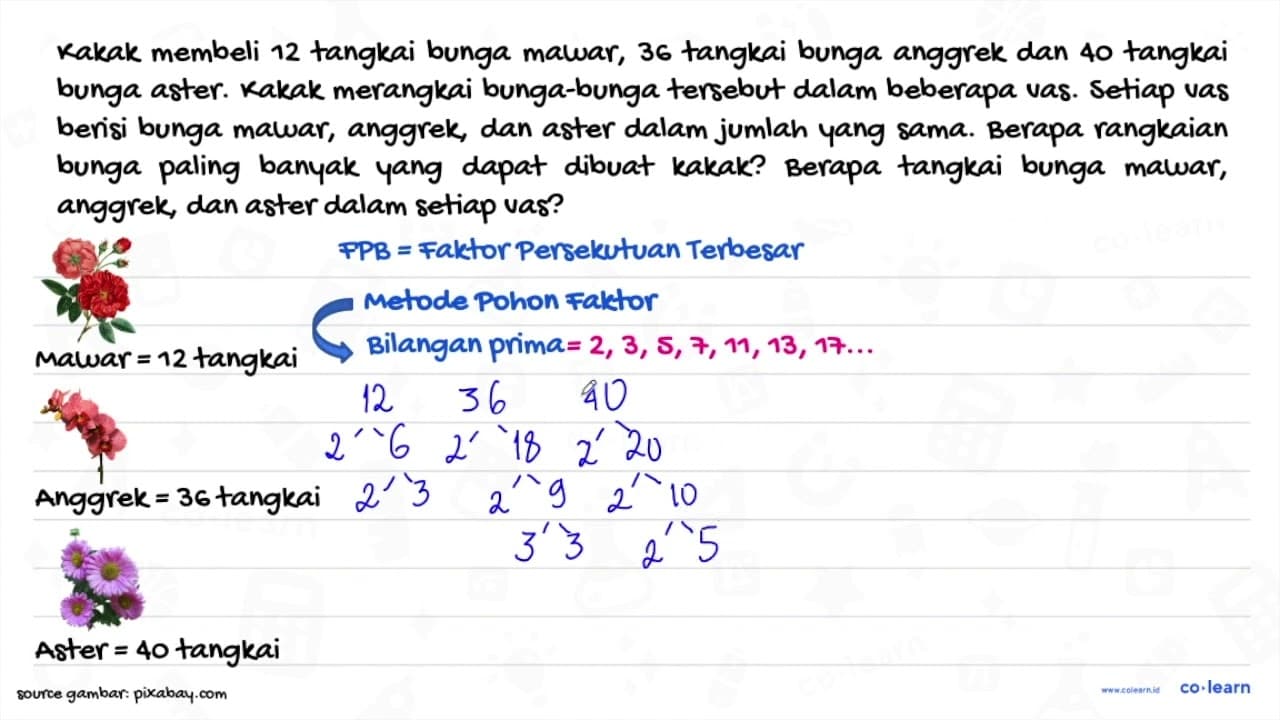 Kakak membeli 12 tangkai bunga mawar, 36 tangkai bunga anggrek dan 40 tangkai
bunga aster. Kakak merangkai bunga-bunga tersebut dalam beberapa vas. Setiap vas
berisi bunga mawar, anggrek, dan aster dalam jumlah yang sama. Berapa rangkaian
bunga paling banyak yang dapat dibuat kakak? Berapa tangkai bunga mawar,
anggrek, dan aster dalam setiap vas?
FPB = Faktor Persekutuan Terbesar
Metode Pohon Faktor
Bilangan prima = 2, 3, 5, 7, 11, 13, 17...
Mawar = 12 tangkai
12 36 40
2 6 2 18 2 20
2 3 2 9 2 10
3 3 2 5
Anggrek = 36 tangkai
Aster = 40 tangkai
source gambar: pixabay.com
www.colearn.id co·learn